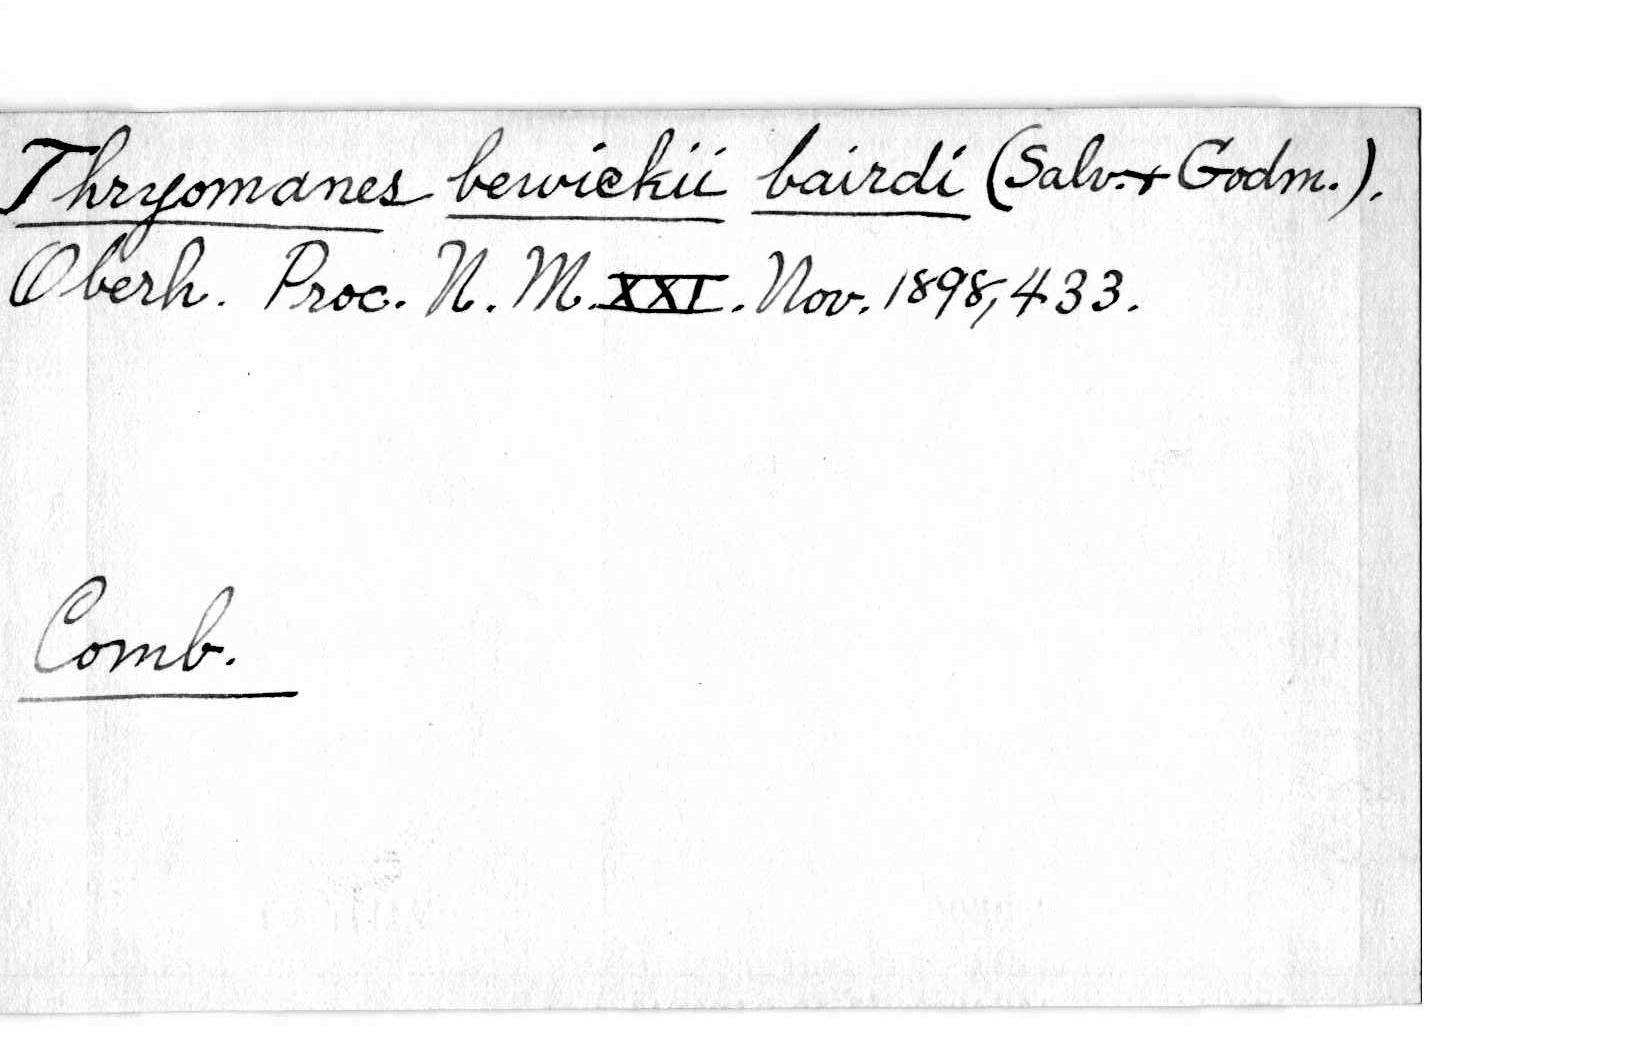 Thryomanes bewickii bairdi (Salv. + Godm.).
Oberh. Proc. N. M. XXI. Nov. 1898, 433.
Comb.